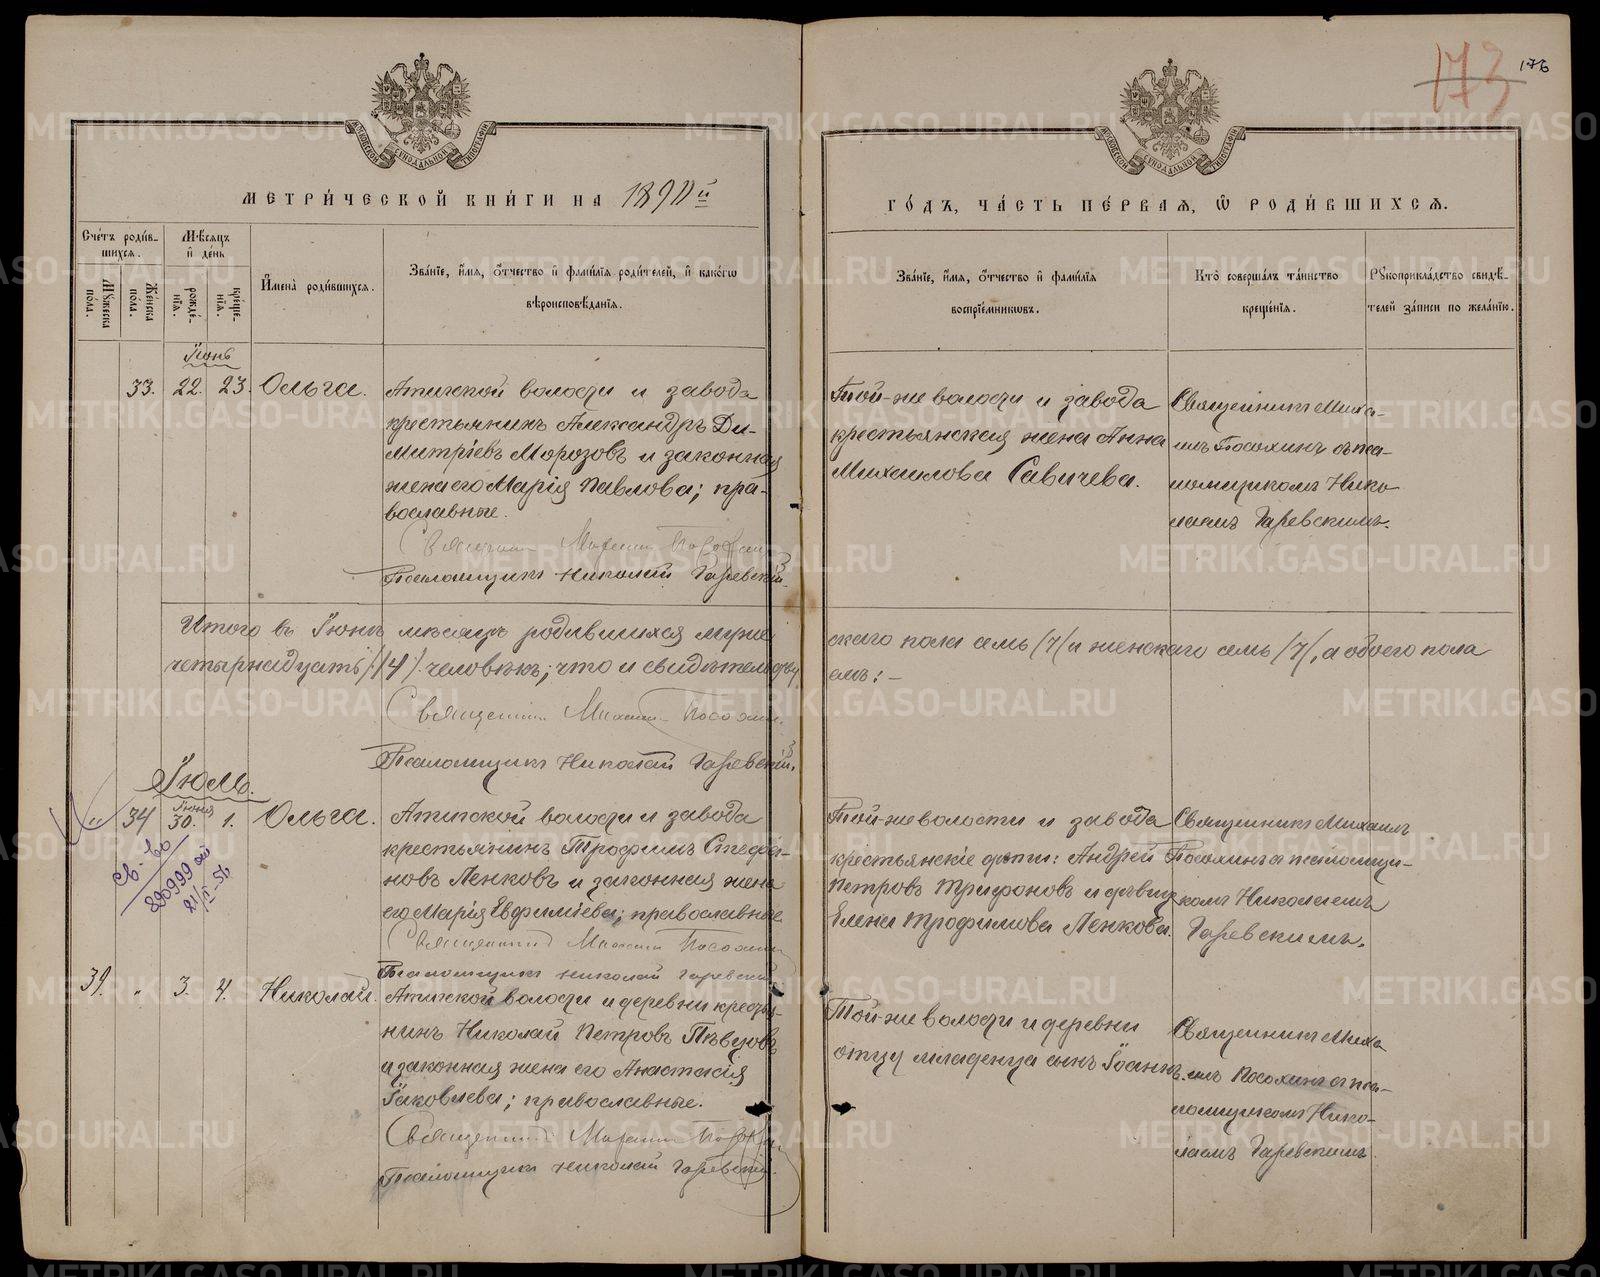 173
176
МОСКОВСКОЙ СѴНОДАЛЬНОЙ ТИПОГРАФІИ
МОСКОВСКОЙ СѴНОДАЛЬНОЙ ТИПОГРАФІИ
МЕТРИ́ЧЕСКОЙ КНИ́ГИ НА 1890й
ГО́ДЪ, ЧА́СТЬ ПЕ́РВАЯ, Ѿ РОДИ́ВШИХСЯ.
Сче́тъ роди́в-
шихся.
Мꙋ́жеска
по́ла.
Же́нска
по́ла.
Мѣ́сяцъ
и де́нь
рожде́-
нія.
креще́-
нія.
И҆мена̀ роди́вшихся.
Зва́ніе, и҆́мя, ѻ҆́тчество и҆ фами́лія роди́телей, и҆ како́гѡ
вѣроисповѣ́данія.
Зва́ніе, и҆́мя, ѻ҆́тчество и҆ фами́лія
воспріе́мникѡвъ.
Кто̀ соверша́лъ та́инство
креще́нія.
Рꙋкоприкла́дство свидѣ́-
телей за́писи по жела́нію.
Іюнь
33. 22. 23. Ольга.
Атигской волости и завода
крестьянинъ Александръ Ди-
митріевъ Морозовъ и законная
жена его Марія Павлова; пра-
вославные.
Священникъ Михаилъ Посохинъ
Псаломщикъ Николай Гаревскій.
Той-же волости и завода
крестьянская жена Анна
Михаилова Савичева.
Священникъ Миха-
илъ Посохинъ съ пса-
ломщикомъ Нико
лаемъ Гаревскимъ.
Итого въ Іюнѣ мѣсяцѣ родившихся муже
скаго пола семь /7/ и женскаго семь /7/, а обоего пола
четырнадцать /14/ человѣкъ; что и свидѣтельству
емъ: –
Священникъ Михаилъ Посохинъ.
Псаломщикъ Николай Гаревскій.
Іюль.
„ 34 Іюня 30. 1. Ольга.
св-во
290999 от
21/II-56
Атигской волости и завода
крестьянинъ Трофимъ Стефа-
новъ Пенковъ и законная жена
его Марія Евфиміева; православные
Священникъ Михаилъ Посохинъ
Псаломщикъ Николай Гаревскій
Той-же волости и завода
крестьянскіе дѣти: Андрей
Петровъ Трифоновъ и дѣвица
Елена Трофимова Пенкова.
Священникъ Михаилъ
Посохинъ съ псаломщи-
комъ Николаемъ
Гаревскимъ.
39. „ 3. 4. Николай.
Атигской волости и деревни крестья-
нинъ Николай Петровъ Пѣвцовъ
и законная жена его Анастасія
Іаковлева; православные.
Священникъ Михаилъ Посохинъ
Псаломщикъ Николай Гаревскій.
Той-же волости и деревни
отцу младенца сынъ Іоаннъ.
Священникъ Миха
илъ Посохинъ съ пса-
ломщикомъ Нико-
лаемъ Гаревскимъ.
METRIKI.GASO-URAL.RU